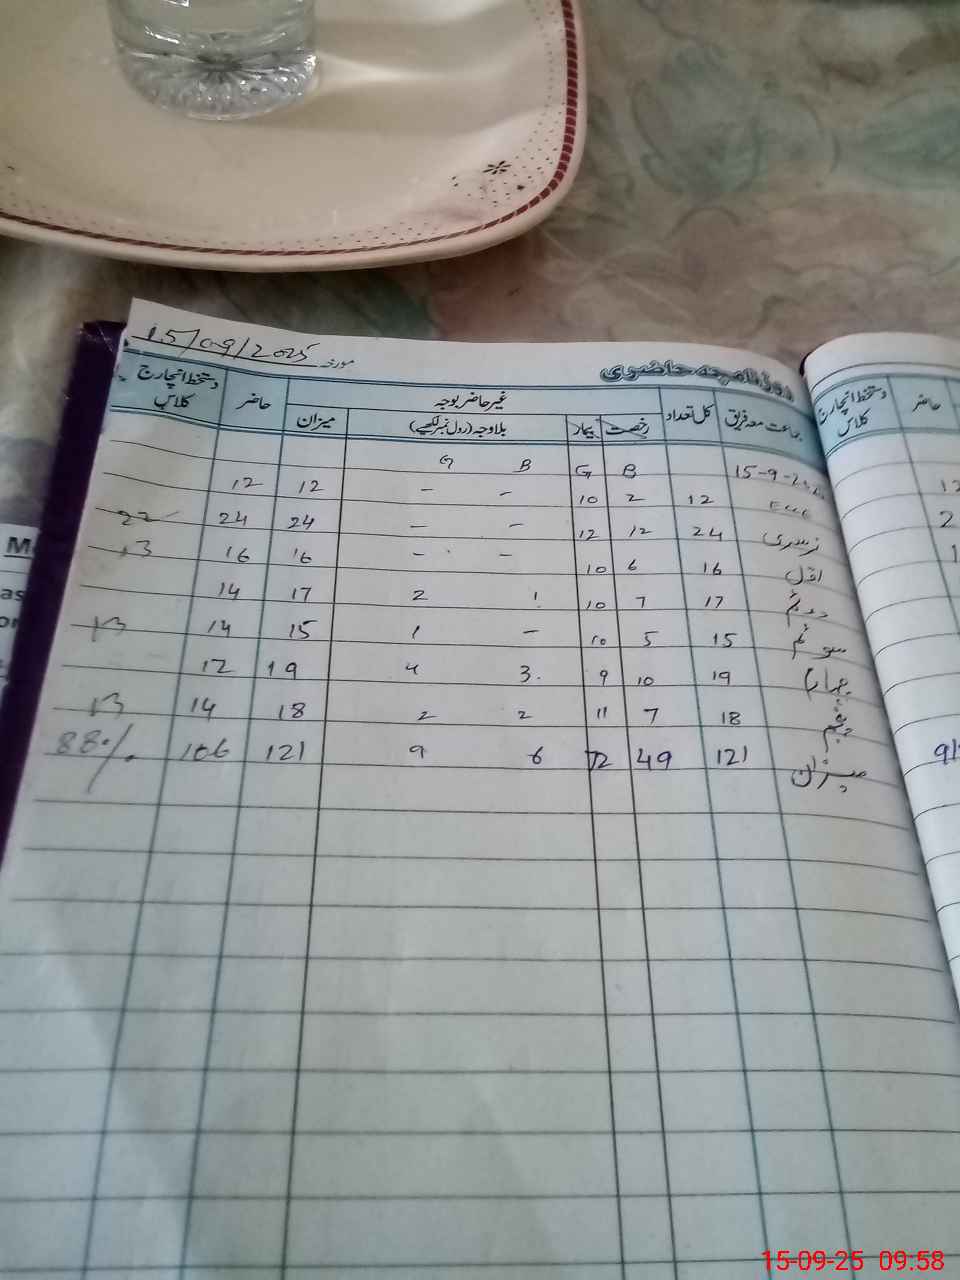 15/09/2025 مورخہ
روزنامچہ حاضری
جماعت معہ فریق کل تعداد غیر حاضر بوجہ حاضر دستخط انچارج کلاس
رخصت بیمار بلاوجہ (رول نمبر لکھیے) میزان
15-9-2025 B G B G
ECE 12 2 10 - - 12 12
نرسری 24 12 12 - - 24 24 22
اول 16 6 10 - - 16 16 13
دوئم 17 7 10 1 2 17 14
سوئم 15 5 10 - 1 15 14 13
چہارم 19 10 9 3 4 19 12
پنجم 18 7 11 2 2 18 14 13
میزان 121 49 72 6 9 121 106 88%
دستخط انچارج کلاس حاضر
15-09-25 09.58